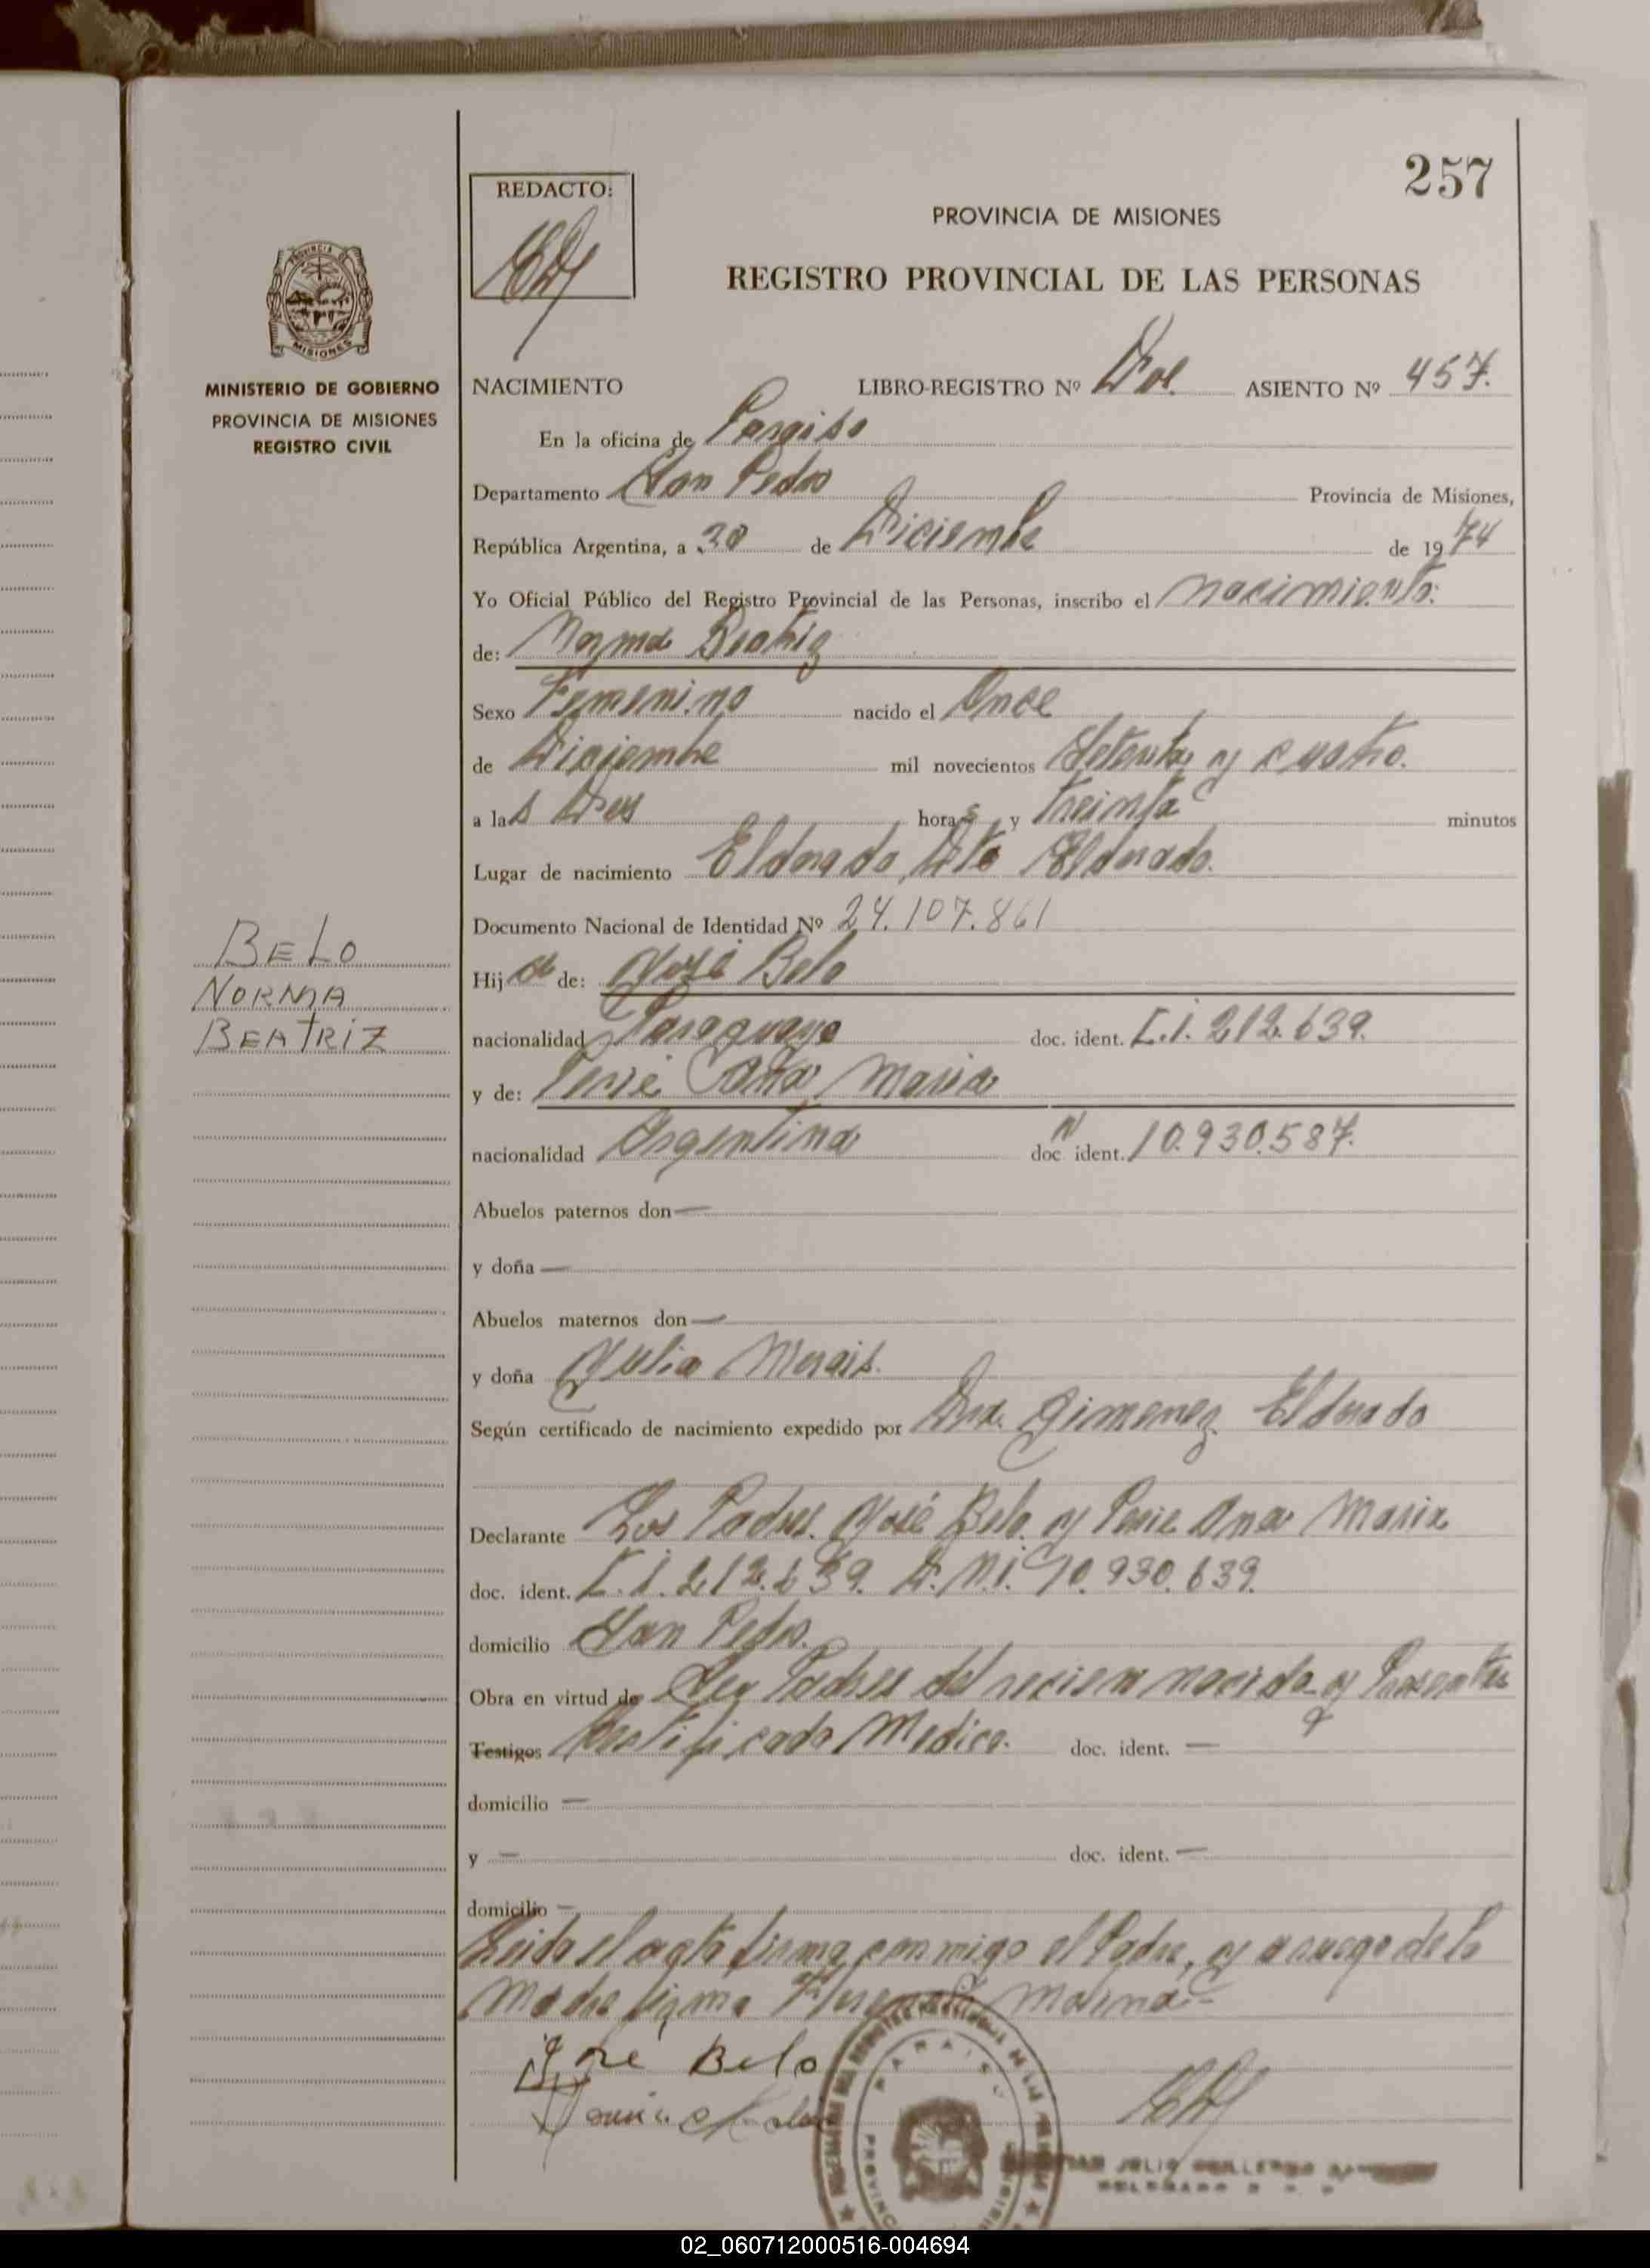 257
REDACTO:
PROVINCIA DE MISIONES
REGISTRO PROVINCIAL DE LAS PERSONAS
MISIONES
MINISTERIO DE GOBIERNO
PROVINCIA DE MISIONES
REGISTRO CIVIL
NACIMIENTO LIBRO-REGISTRO Nº Dos ASIENTO Nº 457.
En la oficina de Paraiso
Departamento San Pedro Provincia de Misiones,
República Argentina, a 30 de Diciembre de 1974
Yo Oficial Público del Registro Provincial de las Personas, inscribo el nacimiento:
de: Norma Beatriz
Sexo Femenino nacido el Once
de Diciembre mil novecientos Setenta y cuatro.
a las tres horas y treinta minutos
Lugar de nacimiento Eldorado Dto Eldorado.
Documento Nacional de Identidad Nº 24.107.861
BELO
NORMA
BEATRIZ
Hija de: José Belo
nacionalidad Paraguayo doc. ident. C.I. 212.639.
y de: Ana Maria
nacionalidad Argentina doc ident. 10.930.587.
Abuelos paternos don —
y doña —
Abuelos maternos don —
y doña Julia Morais.
Según certificado de nacimiento expedido por Dra. Gimenez Eldorado
Declarante Los Padres. José Belo y Ana Maria
doc. ident. C.I. 212.639. D.N.I. 10.930.639.
domicilio San Pedro.
Obra en virtud de Ser Padres del recien nacido y Presentar
Testigos Certificado Medico. doc. ident. —
domicilio —
y — doc. ident. —
domicilio —
Leido el acta firma conmigo el Padre, y a ruego de la
Madre firma Molina
José Belo
PARAISO
JULIO GUILLERMO
02_060712000516-004694